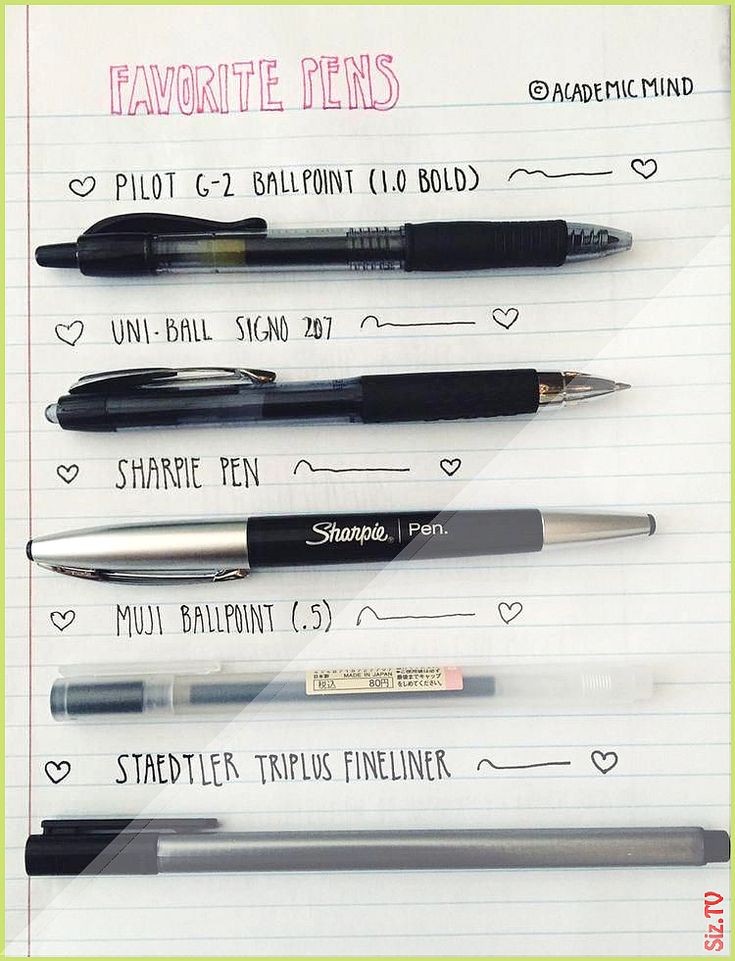 FAVORITE PENS
© ACADEMIC MIND
PILOT G-2 BALLPOINT (1.0 BOLD)
UNI-BALL SIGNO 207
SHARPIE PEN
Sharpie® Pen.
MUJI BALLPOINT (.5)
日本製 MADE IN JAPAN
税込 80円
最後までキャップ
をしめてください。
STAEDTLER TRIPLUS FINELINER
Siz.TV